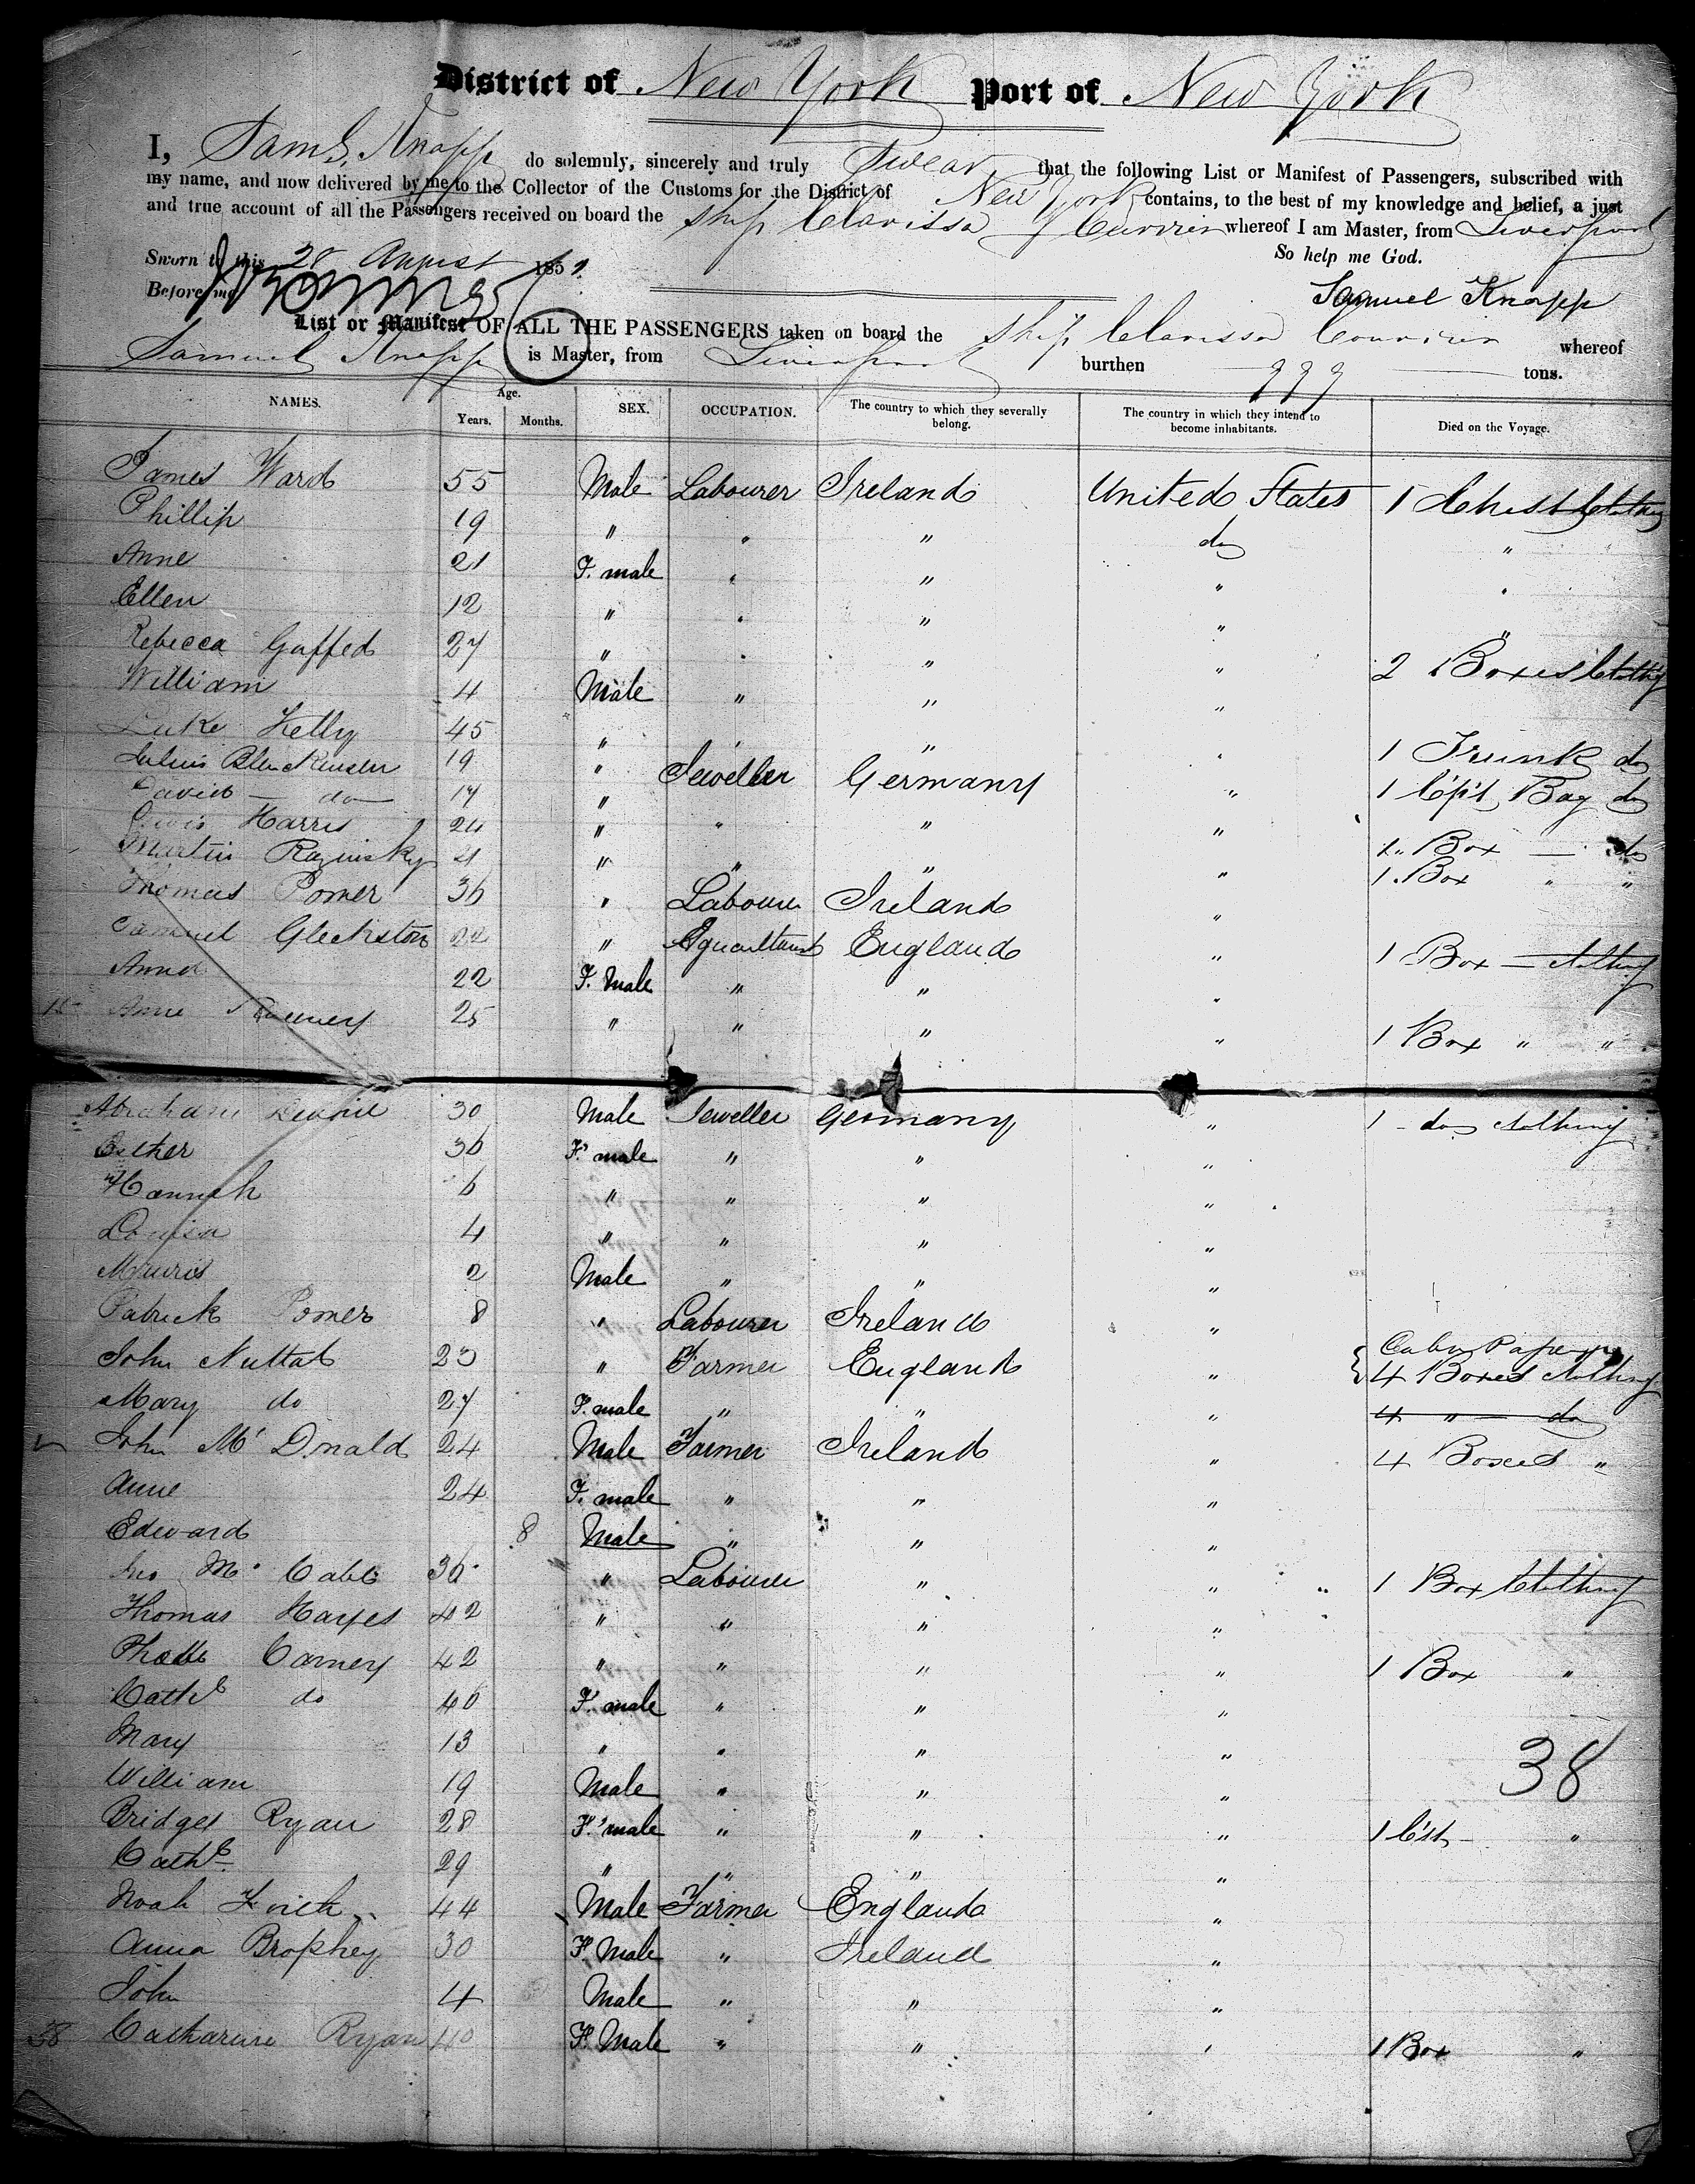 District of New York Port of New York
I, Saml. Knapp do solemnly, sincerely and truly Swear that the following List or Manifest of Passengers, subscribed with
my name, and now delivered by me to the Collector of the Customs for the District of New York contains, to the best of my knowledge and belief, a just
and true account of all the Passengers received on board the Ship Clarissa Currier whereof I am Master, from Liverpool
So help me God.
Sworn to this 28 August 185
Before me
Samuel Knapp
List or Manifest OF ALL THE PASSENGERS taken on board the Ship Clarissa Currier whereof
Samuel Knapp is Master, from Liverpool burthen 999 tons.
NAMES. Age. Years. Months. SEX. OCCUPATION. The country to which they severally belong. The country in which they intend to become inhabitants. Died on the Voyage.
James Ward 55 Male Labourer Ireland United States 1 Chest Clothing
Phillip 19 " " " do "
Anne 21 F. male " " " "
Ellen 12 " " " " "
Rebecca Gaffed 27 " " " "
William 4 Male " " " 2 Boxes Clothg
Luke Kelly 45 " " " " 1 Trunk do
Julius 19 " Jeweller Germany " 1 Cp't Bag do
David — do — 17 " " "
Lewis Harris 24 " " " " 1 " Box — do
Martin Razinsky 21 " " " " 1 . Box " "
Thomas Pomer 36 " Labourer Ireland "
Samuel Gleckston 22 " Agricultturist England " 1 Box — Clothing
Anna 22 F. Male " " "
15 Anne 25 " " " " 1 Box " "
Abraham 30 Male Jeweller Germany " 1 - do Clothing
Esther 36 F. male " " "
Hannah 6 " " " "
Louisa 4 " " " "
Mauris 2 Male " " "
Patrick Pomer 8 " Labourer Ireland "
John Nuttal 23 " Farmer England " 4 Boxes Clothing
Mary do 27 F. male " " " 4 " — do
John Mc Donald 24 Male Farmer Ireland " 4 Boxes "
Anne 24 F. male " " "
Edward 8 Male " " "
Mc Cabe 36 " Labourer " " 1 Box Clothing
Thomas Hayes 42 " " " "
Carney 42 " " " " 1 Box "
Cathe do 40 F. male " " "
Mary 13 " " " "
38
William 19 Male " " "
Bridget Ryan 28 F. male " " " 1 C'st — "
Cathe 29 " " " "
Noah Firth 44 Male Farmer England "
Anna Brophey 30 F. Male " Ireland "
John 4 Male " " "
38 Catharine Ryan 40 F. Male " " " 1 Box "